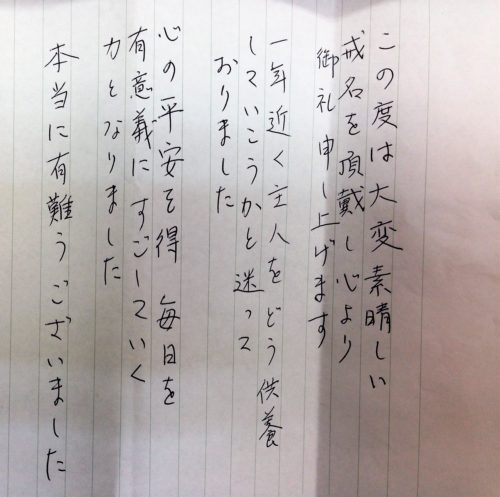 この度は大変素晴しい
戒名を頂戴し心より
御礼申し上げます
一年近く主人をどう供養
していこうかと迷って
おりました
心の平安を得 毎日を
有意義にすごしていく
力となりました
本当に有難うございました